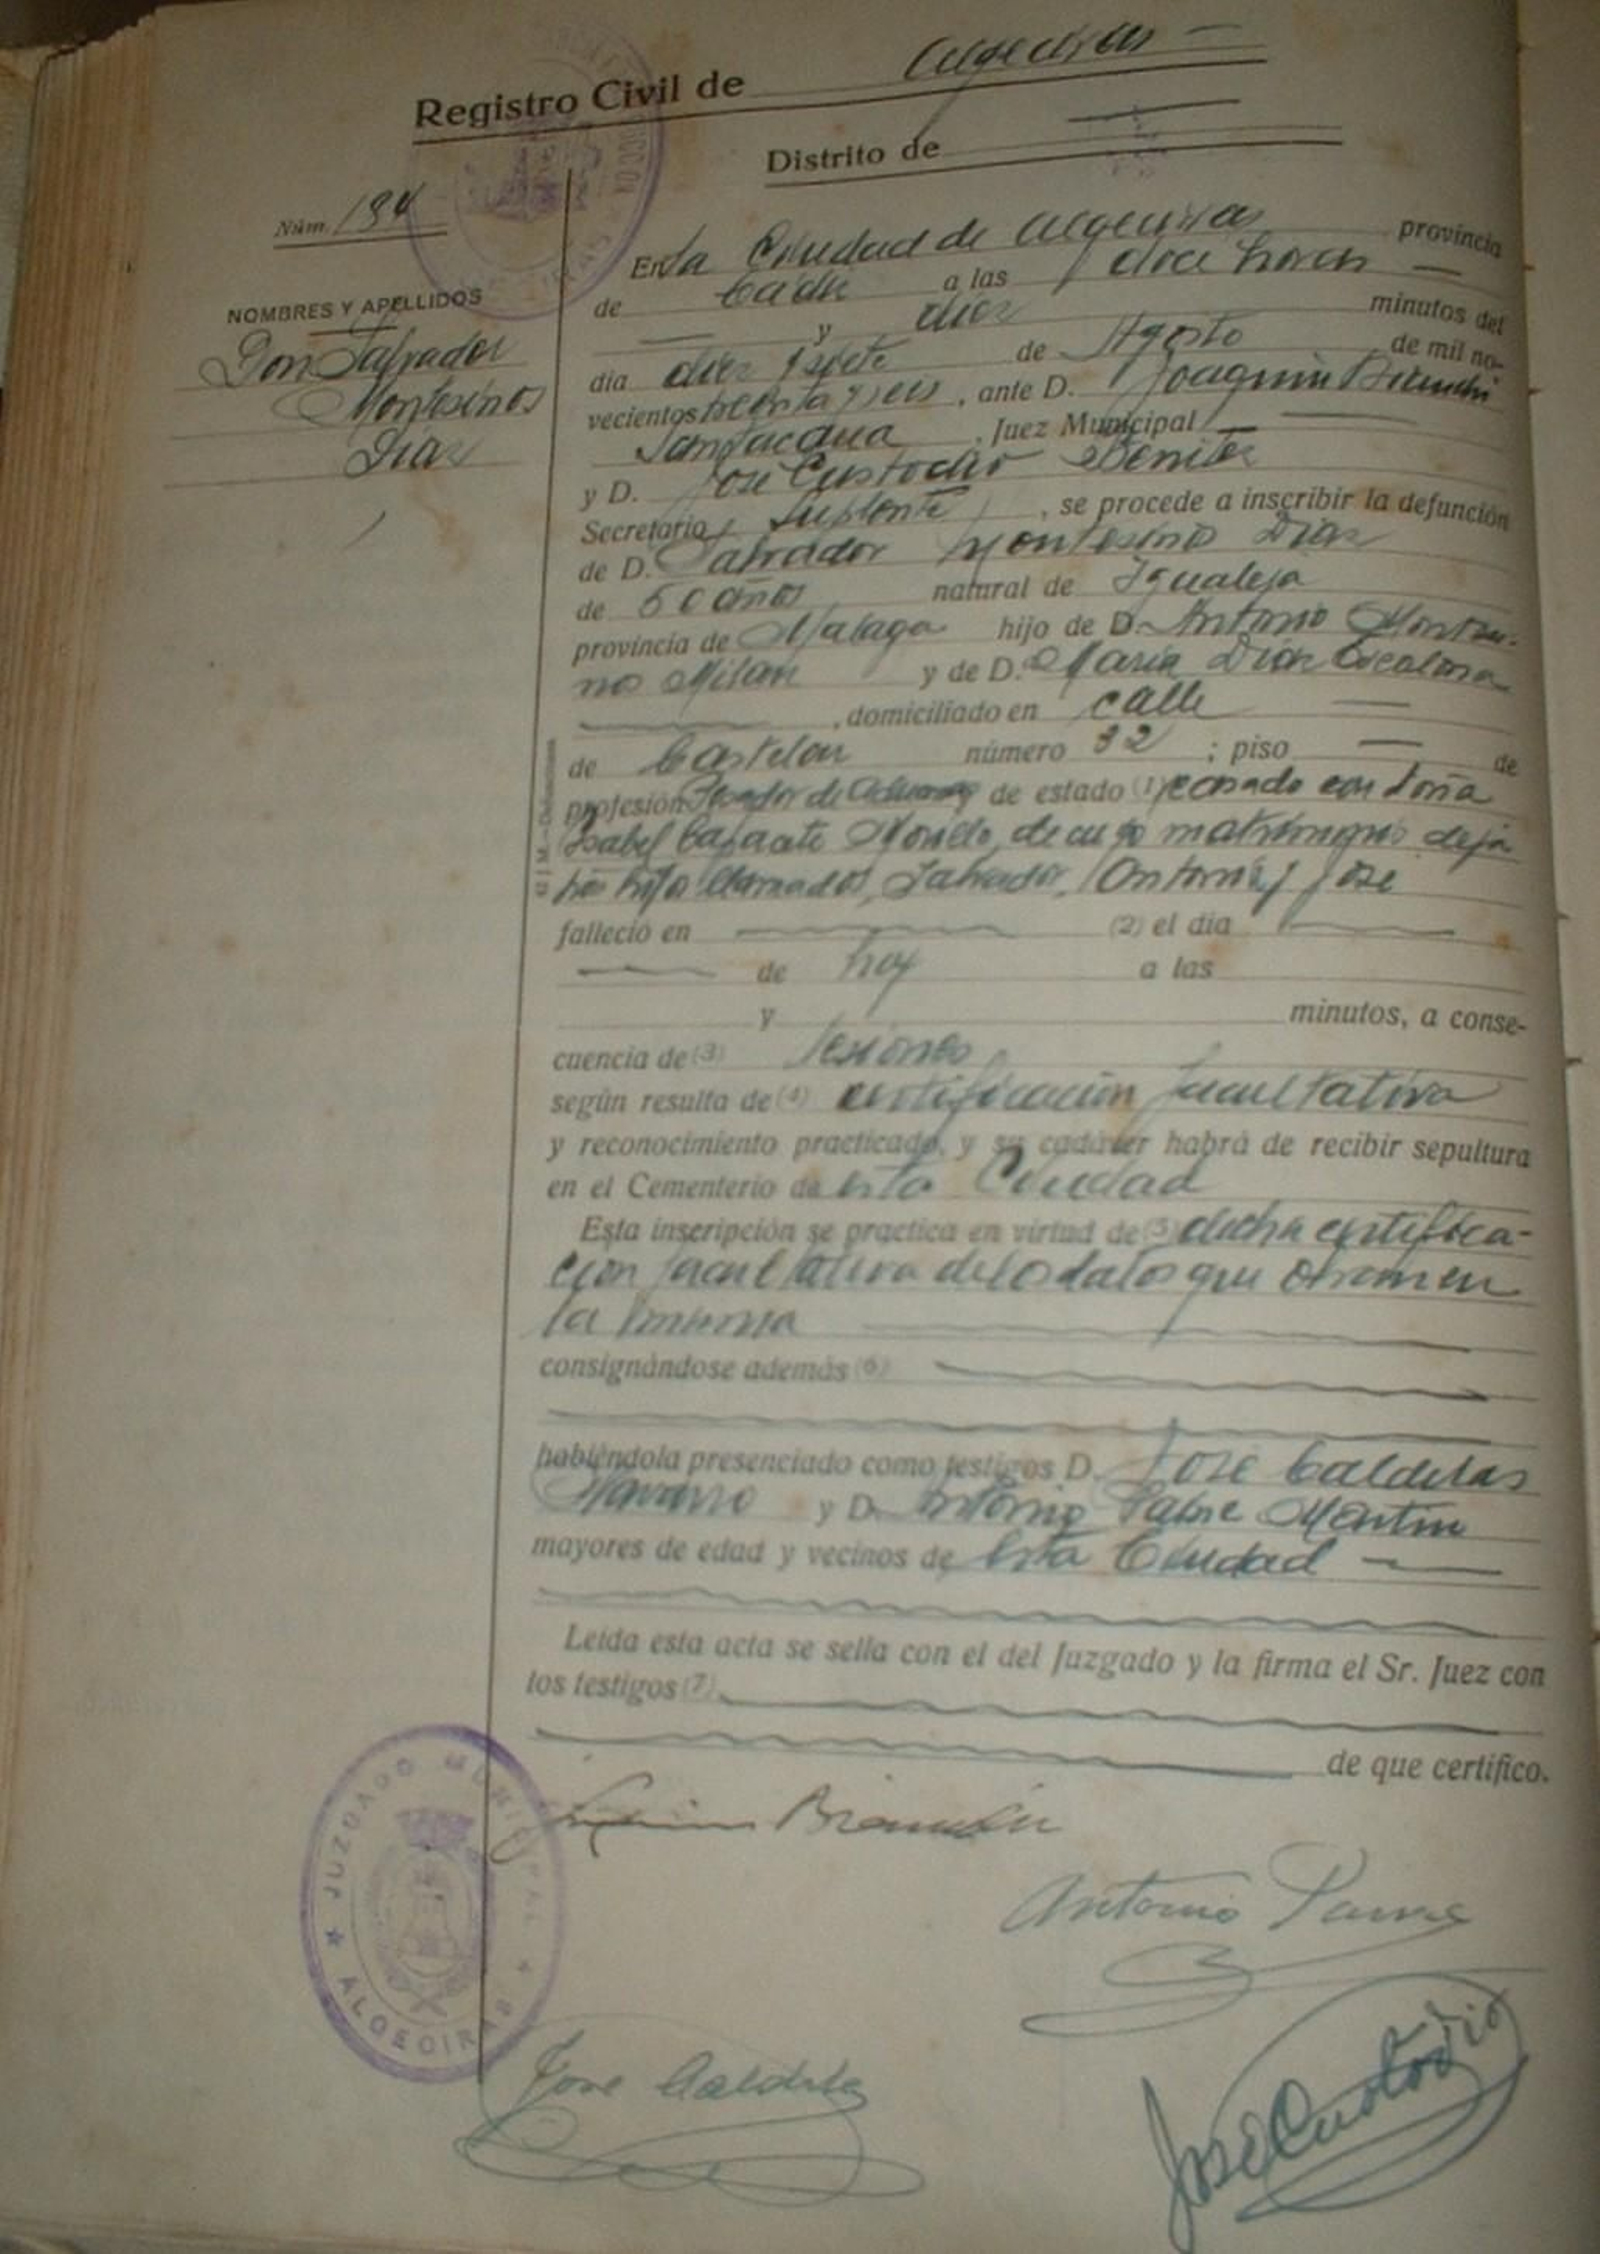 Registro Civil de Algeciras
Distrito de
Núm. 194
NOMBRES Y APELLIDOS
Don Salvador
Montesinos
Díaz
En la Ciudad de Algeciras provincia
de Cádiz a las doce horas
y diez minutos del
día diez y siete de Agosto de mil no-
vecientos treinta y seis, ante D. Joaquín Bianchi
Santacana, Juez Municipal
y D. José Custodio Benitez
Secretario Suplente, se procede a inscribir la defunción
de D. Salvador Montesino Díaz
de 50 años natural de Igualeja
provincia de Málaga hijo de D. Antonio Montesi-
no Milan y de D.ª María Díaz Escalona
, domiciliado en calle
de Castelar número 32 ; piso de
profesión de Aduanas de estado (1) casado con Doña
Isabel de cuyo matrimonio deja
tres hijos llamados, Salvador, Antonio y José
falleció en (2) el día
de hoy a las
y minutos, a conse-
cuencia de (3) lesiones
según resulta de (4) certificación facultativa
y reconocimiento practicado, y su cadáver habrá de recibir sepultura
en el Cementerio de esta Ciudad
Esta inscripción se practica en virtud de (5) dicha certifica-
ción facultativa de los datos que obran en
la misma
consignándose además (6)
habiéndola presenciado como testigos D. José Caldelas
Navarro y D. Antonio Martin
mayores de edad y vecinos de esta Ciudad
Leída esta acta se sella con el del Juzgado y la firma el Sr. Juez con
los testigos (7)
de que certifico.
JUZGADO MUNICIPAL
ALGECIRAS
Bianchi
Antonio
José Caldelas
José Custodio